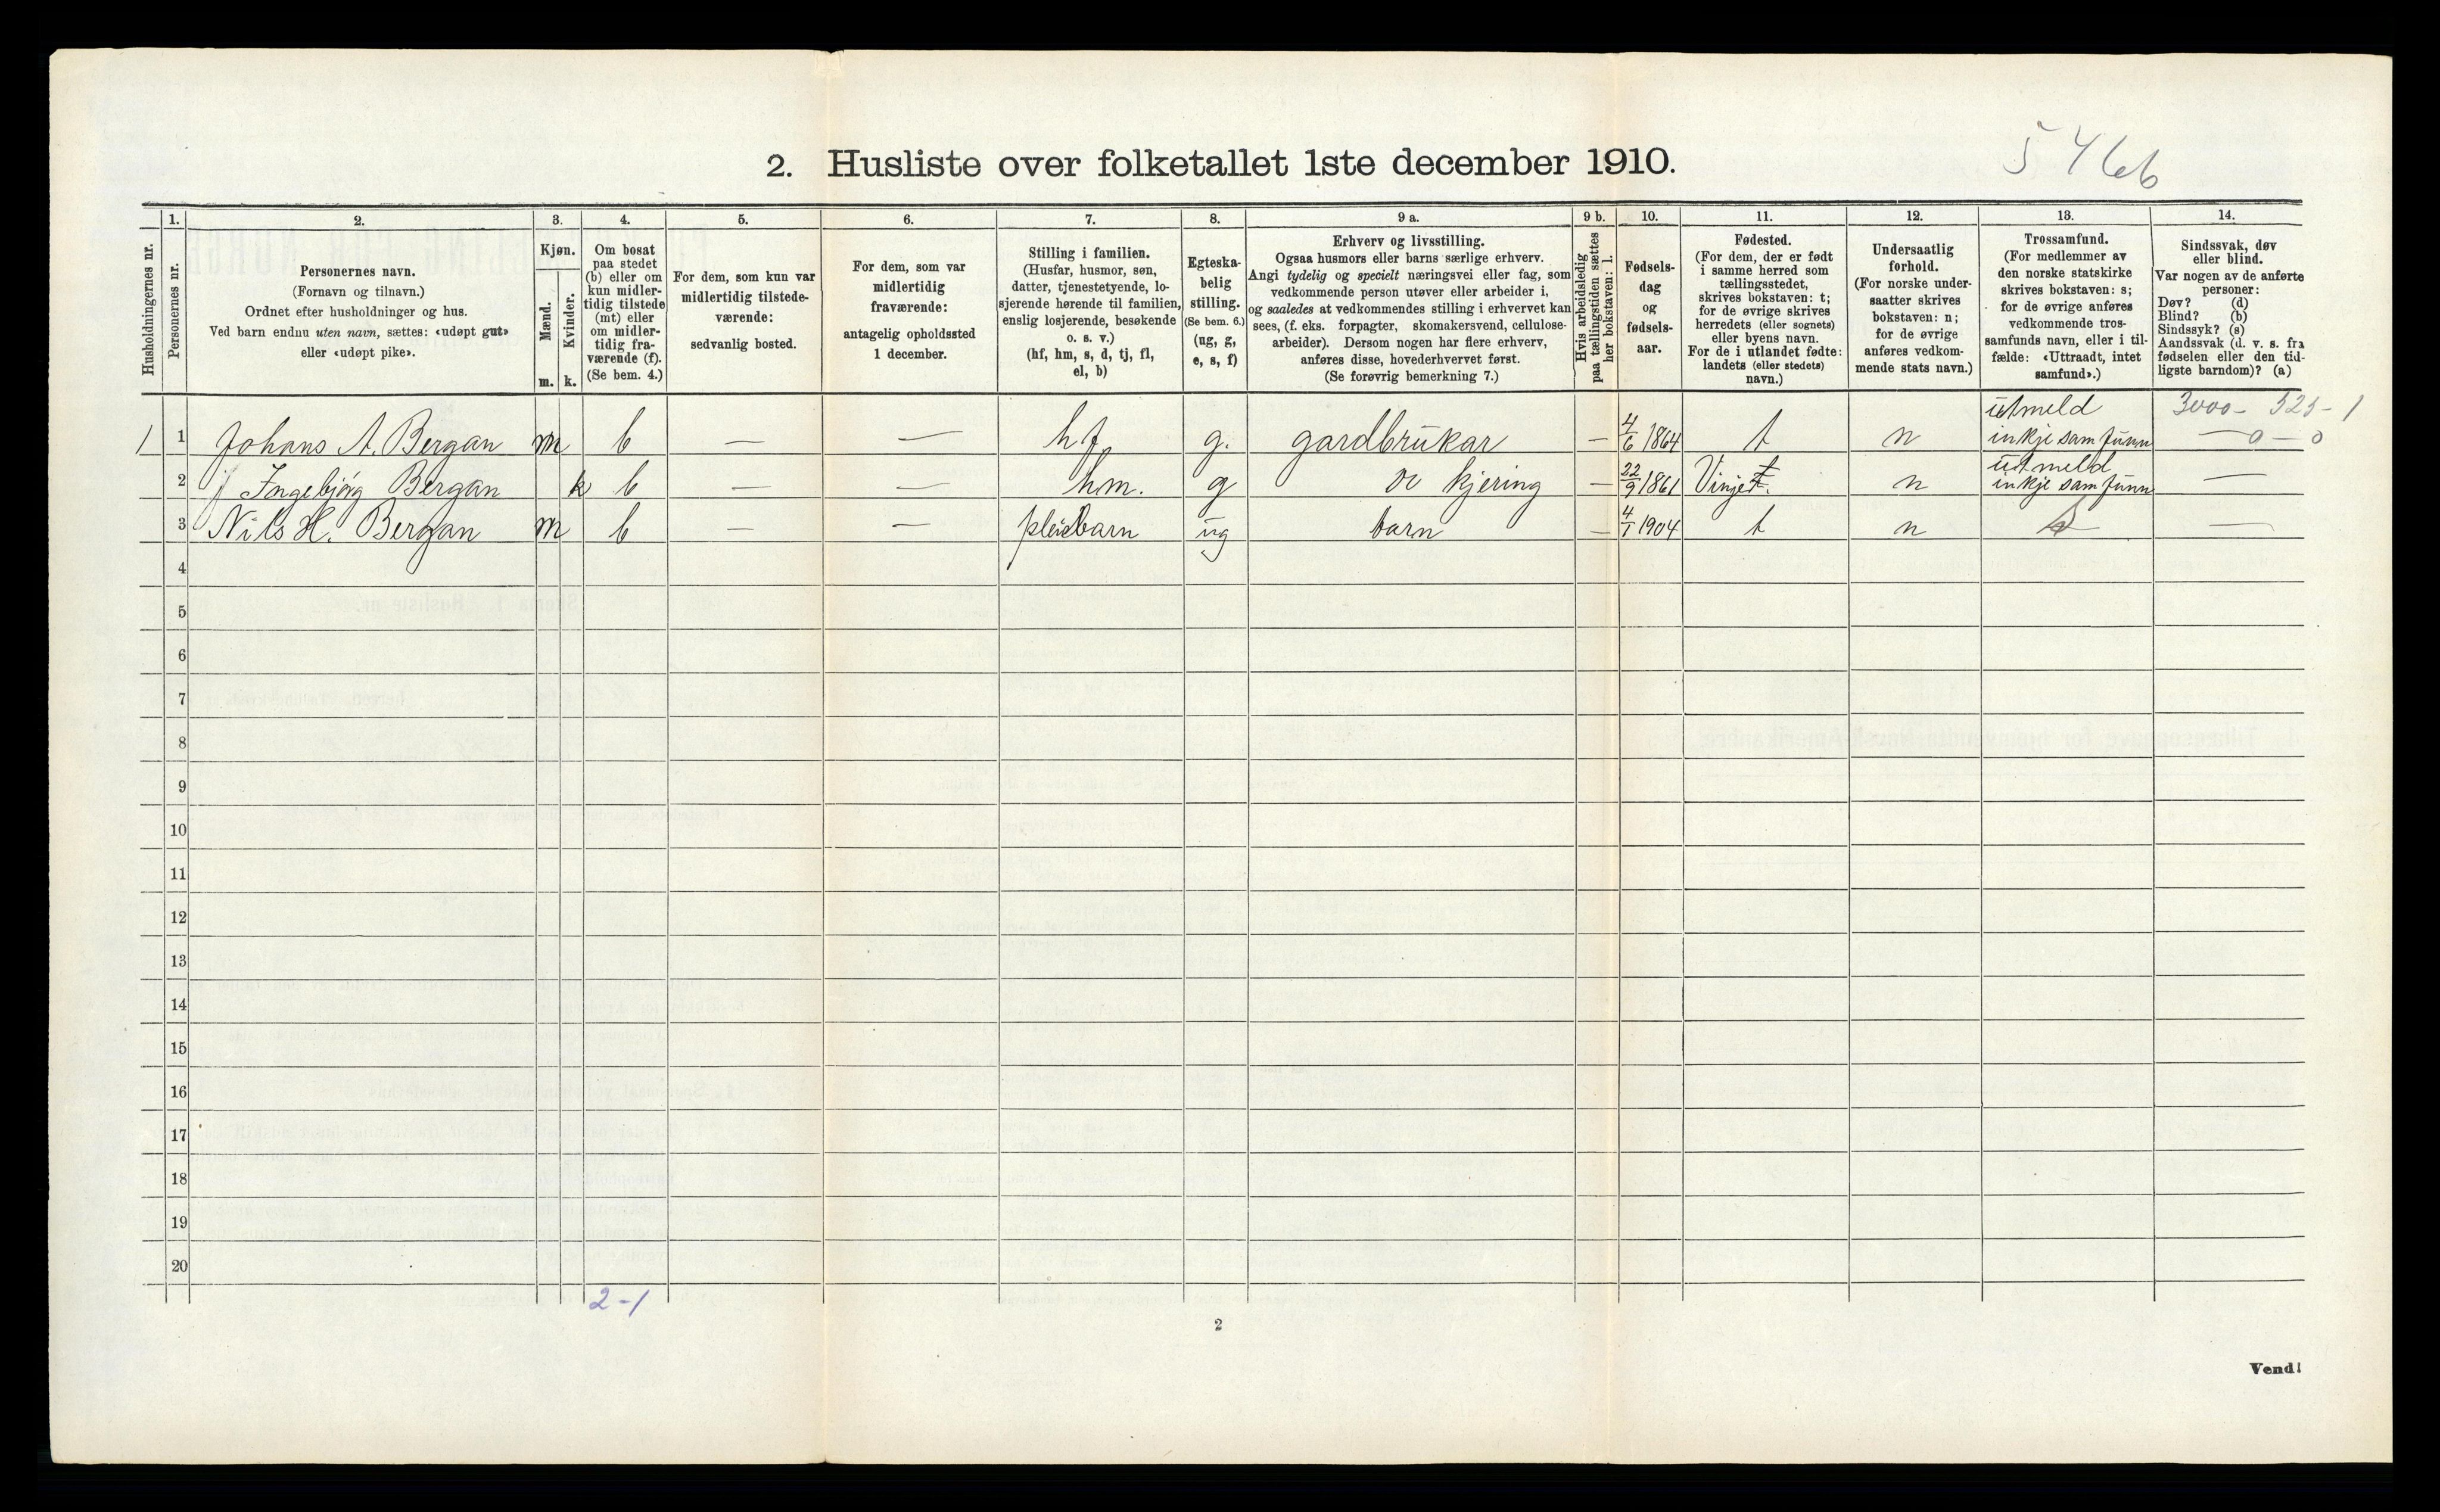 2. Husliste over folketallet 1ste december 1910.
Husholdningernes nr.
1.
Personernes nr.
2.
Personernes navn.
(Fornavn og tilnavn.)
Ordnet efter husholdninger og hus.
Ved barn endnu uten navn, sættes: «udøpt gut»
eller «udøpt pike».
3.
Kjøn.
Mænd.
Kvinder.
m. k.
4.
Om bosat
paa stedet
(b) eller om
kun midler-
tidig tilstede
(mt) eller
om midler-
tidig fra-
værende (f).
(Se bem. 4.)
5.
For dem, som kun var
midlertidig tilstede-
værende:
sedvanlig bosted.
6.
For dem, som var
midlertidig
fraværende:
antagelig opholdssted
1 december.
7.
Stilling i familien.
(Husfar, husmor, søn,
datter, tjenestetyende, lo-
sjerende hørende til familien,
enslig losjerende, besøkende
o. s. v.)
(hf, hm, s, d, tj, fl,
el, b)
8.
Egteska-
belig
stilling.
(Se bem. 6.)
(ug, g,
e, s, f)
9 a.
Erhverv og livsstilling.
Ogsaa husmors eller barns særlige erhverv.
Angi tydelig og specielt næringsvei eller fag, som
vedkommende person utøver eller arbeider i,
og saaledes at vedkommendes stilling i erhvervet kan
sees, (f. eks. forpagter, skomakersvend, cellulose-
arbeider). Dersom nogen har flere erhverv,
anføres disse, hovederhvervet først.
(Se forøvrig bemerkning 7.)
9 b.
Hvis arbeidsledig
paa tællingstiden sættes
her bokstaven: l.
10.
Fødsels-
dag
og
fødsels-
aar.
11.
Fødested.
(For dem, der er født
i samme herred som
tællingsstedet,
skrives bokstaven: t;
for de øvrige skrives
herredets (eller sognets)
eller byens navn.
For de i utlandet fødte:
landets (eller stedets)
navn.)
12.
Undersaatlig
forhold.
(For norske under-
saatter skrives
bokstaven: n;
for de øvrige
anføres vedkom-
mende stats navn.)
13.
Trossamfund.
(For medlemmer av
den norske statskirke
skrives bokstaven: s;
for de øvrige anføres
vedkommende tros-
samfunds navn, eller i til-
fælde: «Uttraadt, intet
samfund».)
14.
Sindssvak, døv
eller blind.
Var nogen av de anførte
personer:
Døv? (d)
Blind? (b)
Sindssyk? (s)
Aandssvak (d. v. s. fra
fødselen eller den tid-
ligste barndom)? (a)
utmeld 3000 - 525 - 1
1 1 Johans A. Bergan m b — — hf g. gardbrukar — 4/6 1864 t n inkje samfunn — 0 — 0
utmeld
2 Ingebjørg Bergan k b — — hm. g kjering — 22/9 1861 Vinje t. n inkje samfunn —
3 Nils H. Bergan m b — — pleiebarn ug barn — 4/1 1904 t n s —
4
5
6
7
8
9
10
11
12
13
14
15
16
17
18
19
20
2-1
2
Vend!